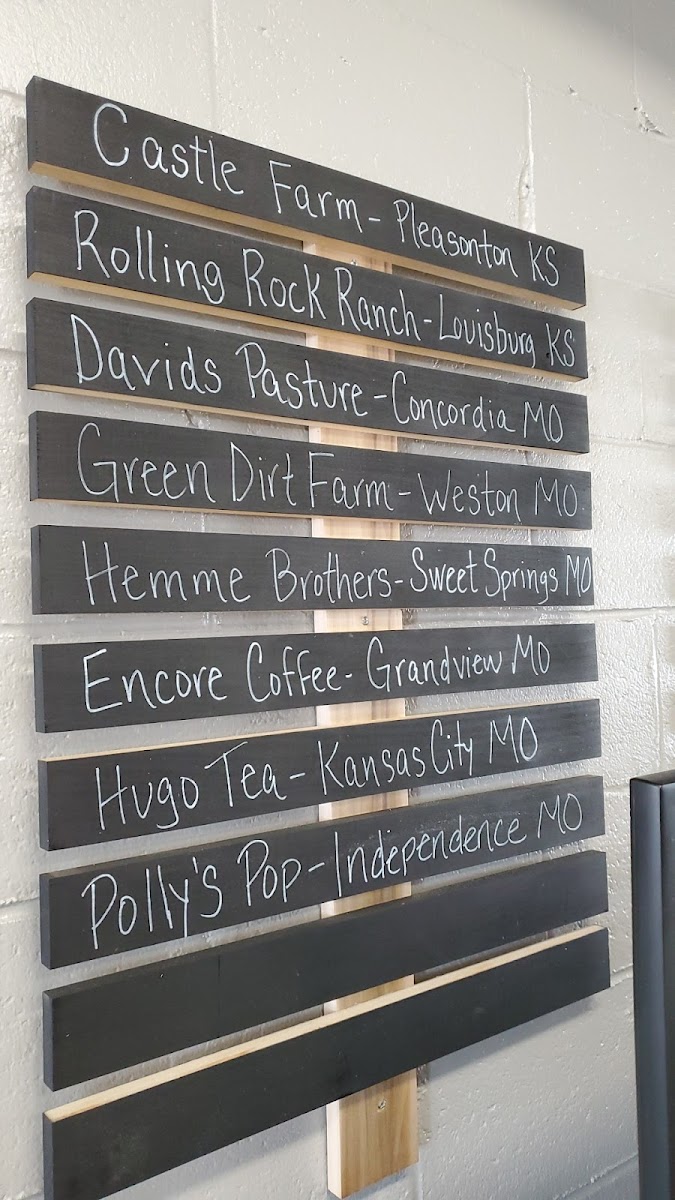 Castle Farm - Pleasonton KS
Rolling Rock Ranch - Louisburg KS
Davids Pasture - Concordia MO
Green Dirt Farm - Weston MO
Hemme Brothers - Sweet Springs MO
Encore Coffee - Grandview MO
Hugo Tea - Kansas City MO
Polly's Pop - Independence MO